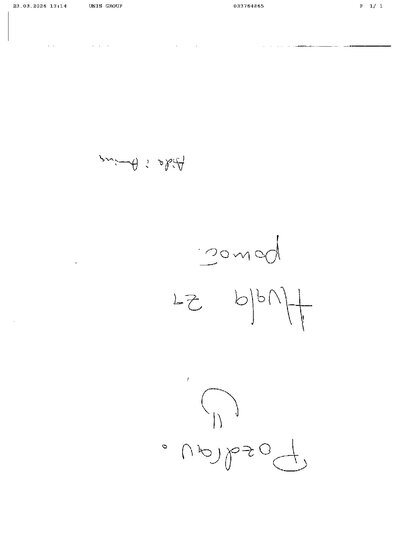 23.03.2026 13:14 UNIS GROUP 033764265 P 1/ 1
Pozdrav.
Hvala za
pomoć.
Aida i